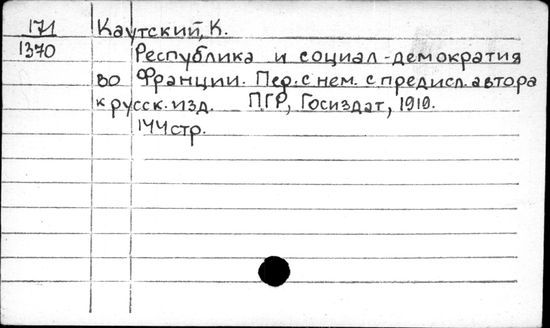 171 Каутский, К.
1370 Республика и социал-демократия
во Франции. Пер. с нем. с предисл. автора
к русск. изд. ПГР, Госиздат, 1919.
144 стр.